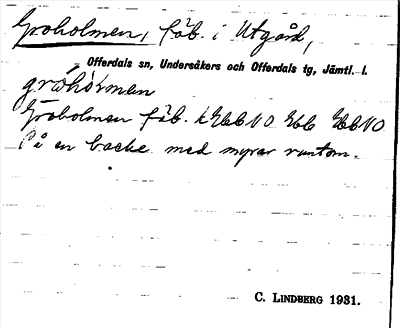 Groholmen, fäb. i Utgård,
Offerdals sn, Undersåkers och Offerdals tg, Jämtl. l.
gróhòrmen
Groholmen fäb.
På en backe med myrar runtom.
C. LINDBERG 1931.